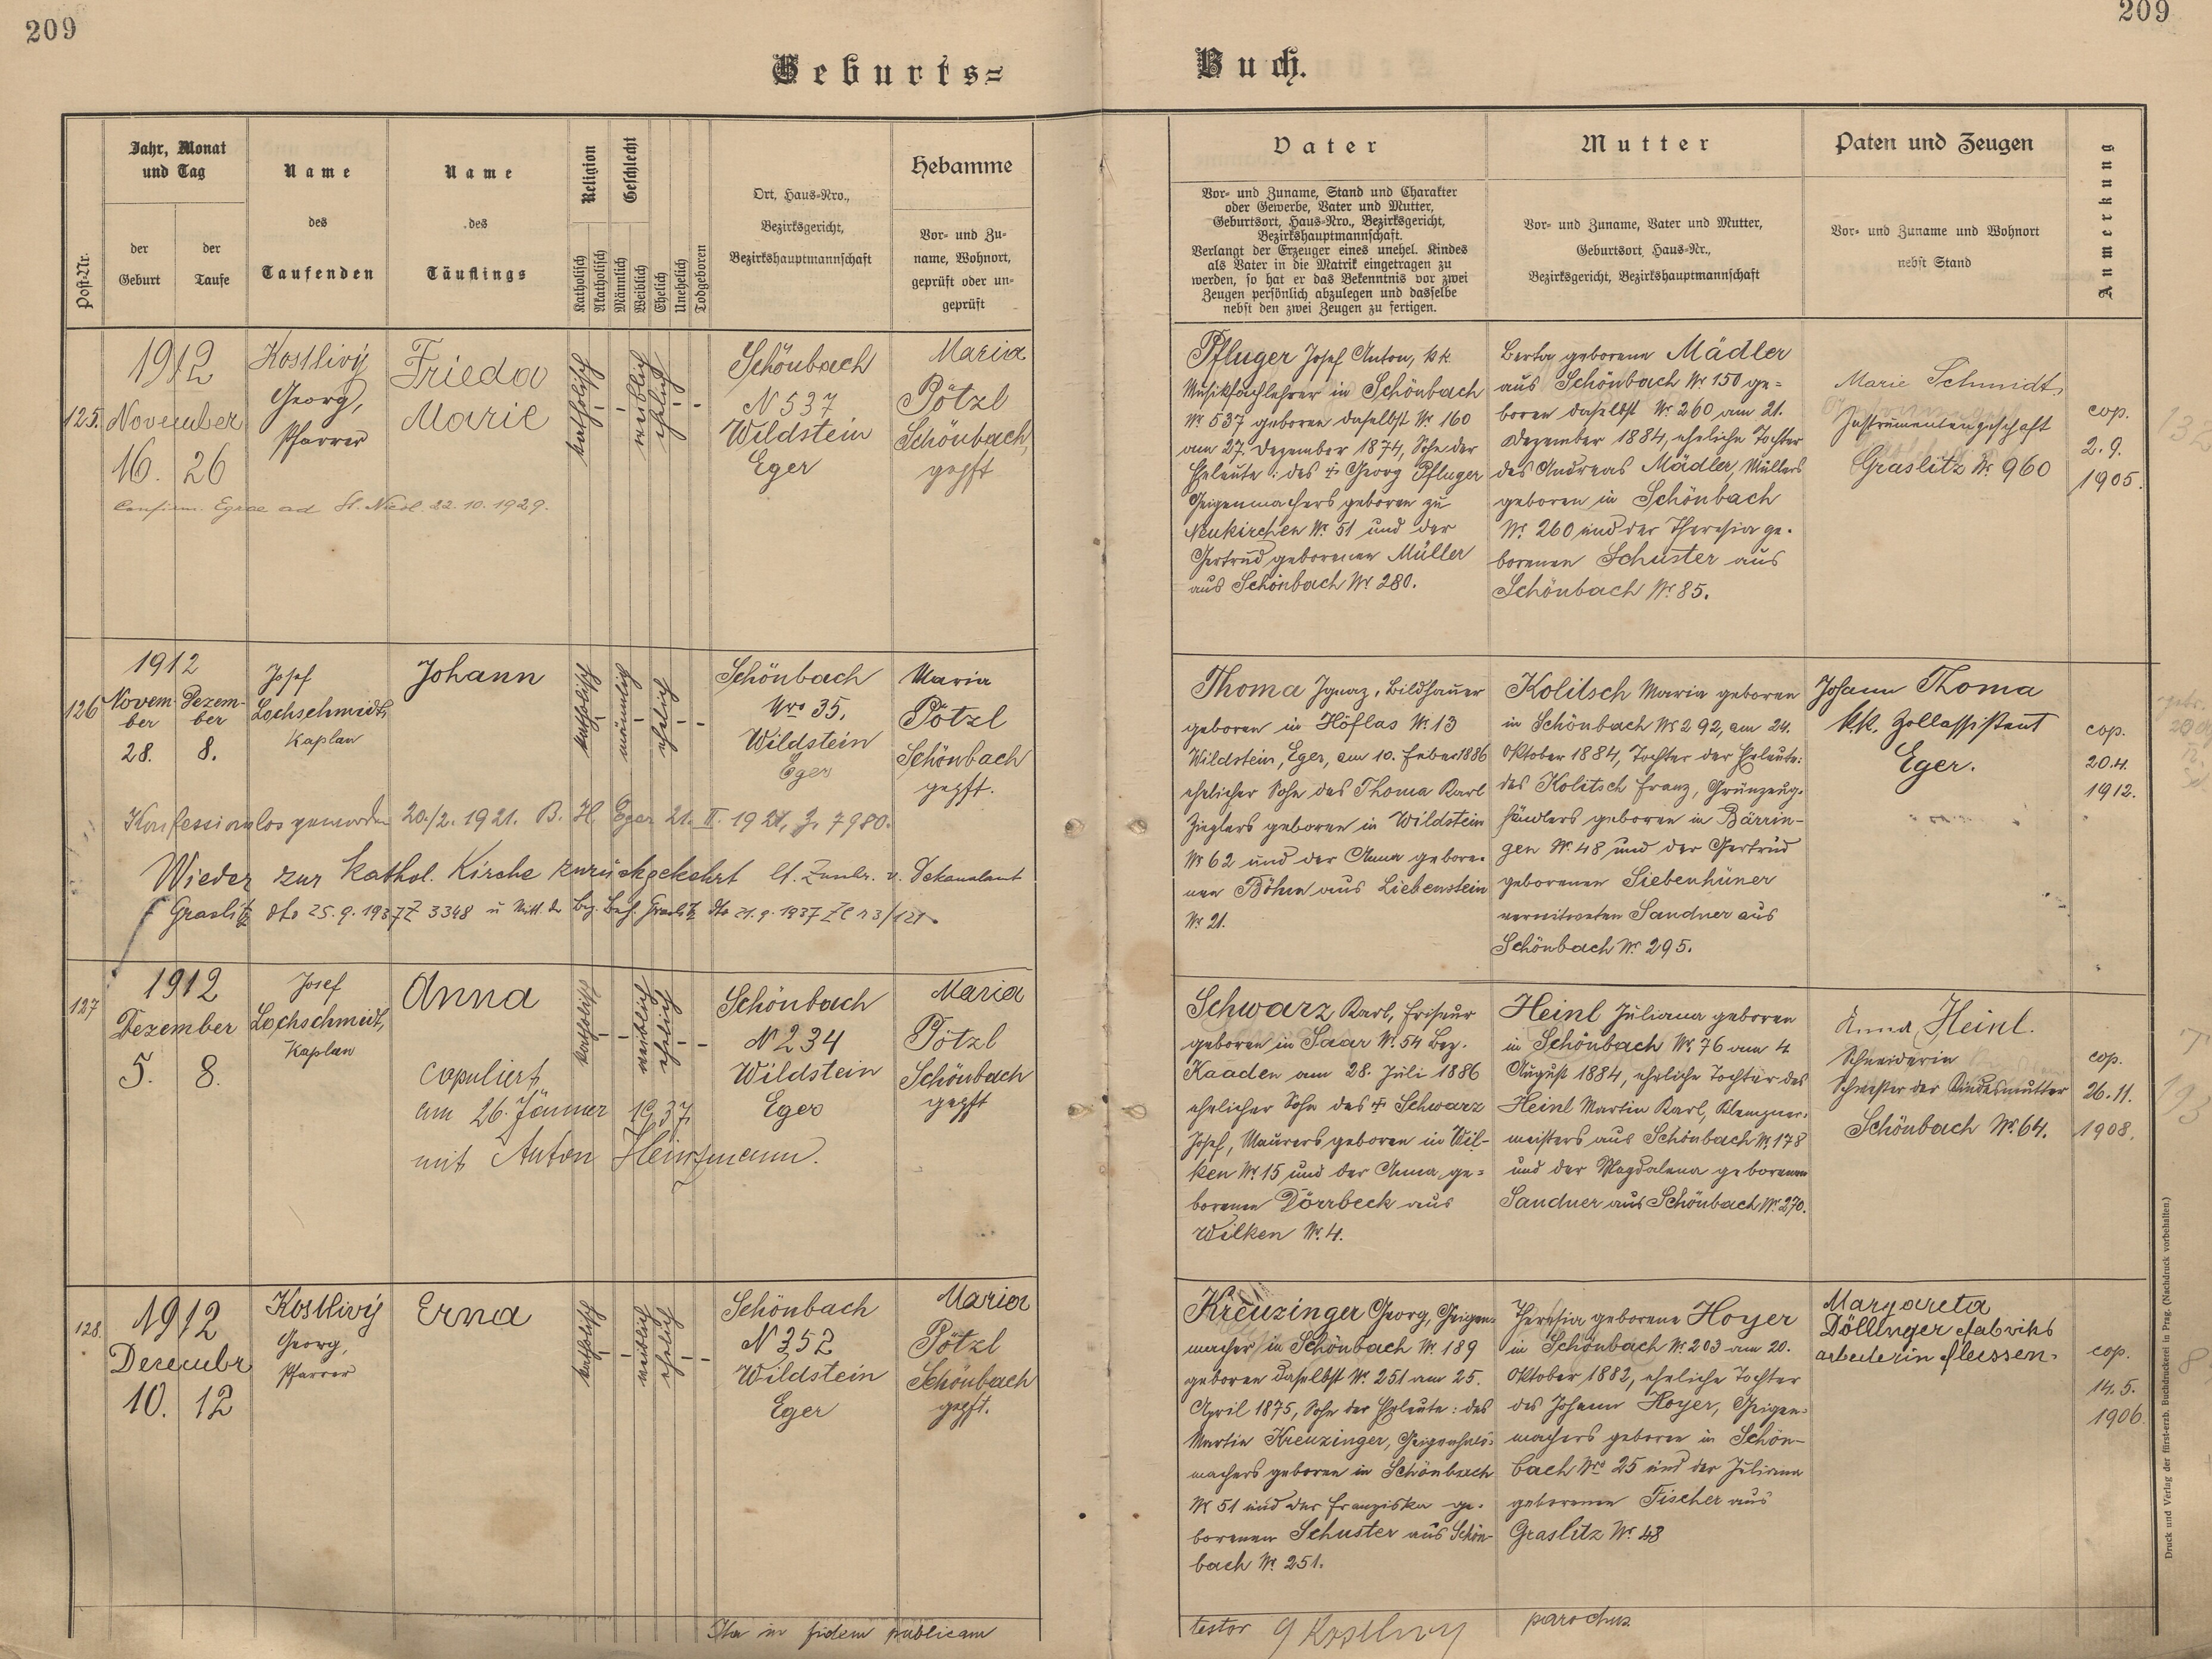 209
209
Geburts=
Buch.
Post-Nr.
Jahr, Monat
und Tag
der
Geburt
der
Taufe
Name
des
Taufenden
Name
des
Täuflings
Religion
Katholisch
Akatholisch
Geschlecht
Männlich
Weiblich
Ehelich
Unehelich
Todgeboren
Ort, Haus-Nro.,
Bezirksgericht,
Bezirkshauptmannschaft
Hebamme
Vor- und Zu-
name, Wohnort,
geprüft oder un-
geprüft
Vater
Vor- und Zuname, Stand und Charakter
oder Gewerbe, Vater und Mutter,
Geburtsort, Haus-Nro., Bezirksgericht,
Bezirkshauptmannschaft.
Verlangt der Erzeuger eines unehel. Kindes
als Vater in die Matrik eingetragen zu
werden, so hat er das Bekenntnis vor zwei
Zeugen persönlich abzulegen und dasselbe
nebst den zwei Zeugen zu fertigen.
Mutter
Vor- und Zuname, Vater und Mutter,
Geburtsort, Haus-Nr.,
Bezirksgericht, Bezirkshauptmannschaft
Paten und Zeugen
Vor- und Zuname und Wohnort
nebst Stand
Anmerkung
125.
1912
November
16. 26
Kostlivý
Georg,
Pfarrer
Frieda
Marie
katholisch
weiblich
ehelich
Schönbach
N 537
Wildstein
Eger
Maria
Pötzl
Schönbach,
gepft
Confirm. Egrae ad St. Nicol. 22. 10. 1929.
Pfluger Josef Anton, kk
Musikfachlehrer in Schönbach
Nr. 537 geboren daselbst Nr. 160
am 27. Dezember 1874, Sohn der
Eheleute: des † Georg Pfluger
Geigenmachers geboren zu
Neukirchen Nr. 51 und der
Gertrud geborenen Müller
aus Schönbach Nr. 280.
Berta geborene Mädler
aus Schönbach Nr. 150 ge=
boren daselbst Nr. 260 am 21.
Dezember 1884, eheliche Tochter
des Andreas Mädler, Müllers
geboren in Schönbach
Nr. 260 und der Theresia ge-
borenen Schuster aus
Schönbach Nr. 85.
Marie Schmidt,
Instrumentengeschäft
Graslitz Nr. 960
cop.
2. 9.
1905.
126
1912
Novem-
ber
28.
Dezem-
ber
8.
Josef
Lochschmidt,
Kaplan
Johann
katholisch
männlich
ehelich
Schönbach
Nro 35.
Wildstein
Eger
Maria
Pötzl
Schönbach
gepft.
Konfessionslos geworden 20./2. 1921. B. H Eger 21. II. 1921, Z. 7980.
Wieder zur kathol. Kirche zurückgekehrt lt. v. Dekanalamt
Graslitz dto 25. 9. 1937 Z 3348 u Mitt. der Bez. Beh. Graslitz dto 21. 9. 1937
Thoma Ignaz, Bildhauer
geboren in Höflas Nr. 13
Wildstein, Eger, am 10. Feber 1886
ehelicher Sohn des Thoma Karl
Zieglers geboren in Wildstein
Nr 62 und der Anna gebore-
nen Böhm aus Liebenstein
Nr. 21.
Kolitsch Maria geboren
in Schönbach Nr 292, am 24.
Oktober 1884, Tochter der Eheleute:
des Kolitsch Franz, Grünzeug-
händlers geboren in Bärrin-
gen Nr. 48 und der Gertrud
geborenen Siebenhüner
verwitweten Sandner aus
Schönbach Nr. 295.
Johann Thoma
k.k. Zollassistent
Eger.
cop.
20.4.
1912.
127
1912
Dezember
5. 8.
Josef
Lochschmidt,
Kaplan
Anna
copuliert
am 26. Jänner 1937
mit Anton Heinzmann.
katholisch
weiblich
ehelich
Schönbach
N 234
Wildstein
Eger
Maria
Pötzl
Schönbach
gepft
Schwarz Karl, Friseur
geboren in Saar Nr. 54 Bez.
Kaaden am 28. Juli 1886
ehelicher Sohn des † Schwarz
Josef, Maurers geboren in Wil-
ken Nr. 15 und der Anna ge-
borenen Dörrbeck aus
Wilken Nr. 4.
Heinl Juliana geboren
in Schönbach Nr. 76 am 4.
August 1884, eheliche Tochter des
Heinl Martin Karl, Klempner-
meisters aus Schönbach Nr. 178
und der Magdalena geborenen
Sandner aus Schönbach Nr. 270.
Anna Heinl.
Schneiderin
Schwester der Kindesmutter
Schönbach Nr. 64.
cop.
26. 11.
1908.
128.
1912
Dezember
10. 12
Kostlivý
Georg,
Pfarrer
Erna
katholisch
weiblich
ehelich
Schönbach
N 352
Wildstein
Eger
Maria
Pötzl
Schönbach
gepft.
Kreuzinger Georg, Geigen-
macher in Schönbach Nr. 189
geboren daselbst Nr. 251 am 25.
April 1875, Sohn der Eheleute: des
Martin Kreuzinger, Geigenhals-
machers geboren in Schönbach
Nr 51 und der Franziska ge-
borenen Schuster aus Schön-
bach Nr. 251.
Theresia geborene Hoyer
in Schönbach Nr. 203 am 20.
Oktober 1882, eheliche Tochter
des Johann Hoyer, Geigen-
machers geboren in Schön-
bach Nro 25 und der Juliana
geborenen Fischer aus
Graslitz Nr. 48
Margareta
Döllinger Fabriks
arbeiterin Fleissen.
cop.
14. 5.
1906.
Ita in fidem publicam
testor G Kostlivy parochus
Druck und Verlag der fürst-erzb. Buchdruckerei in Prag. (Nachdruck vorbehalten.)